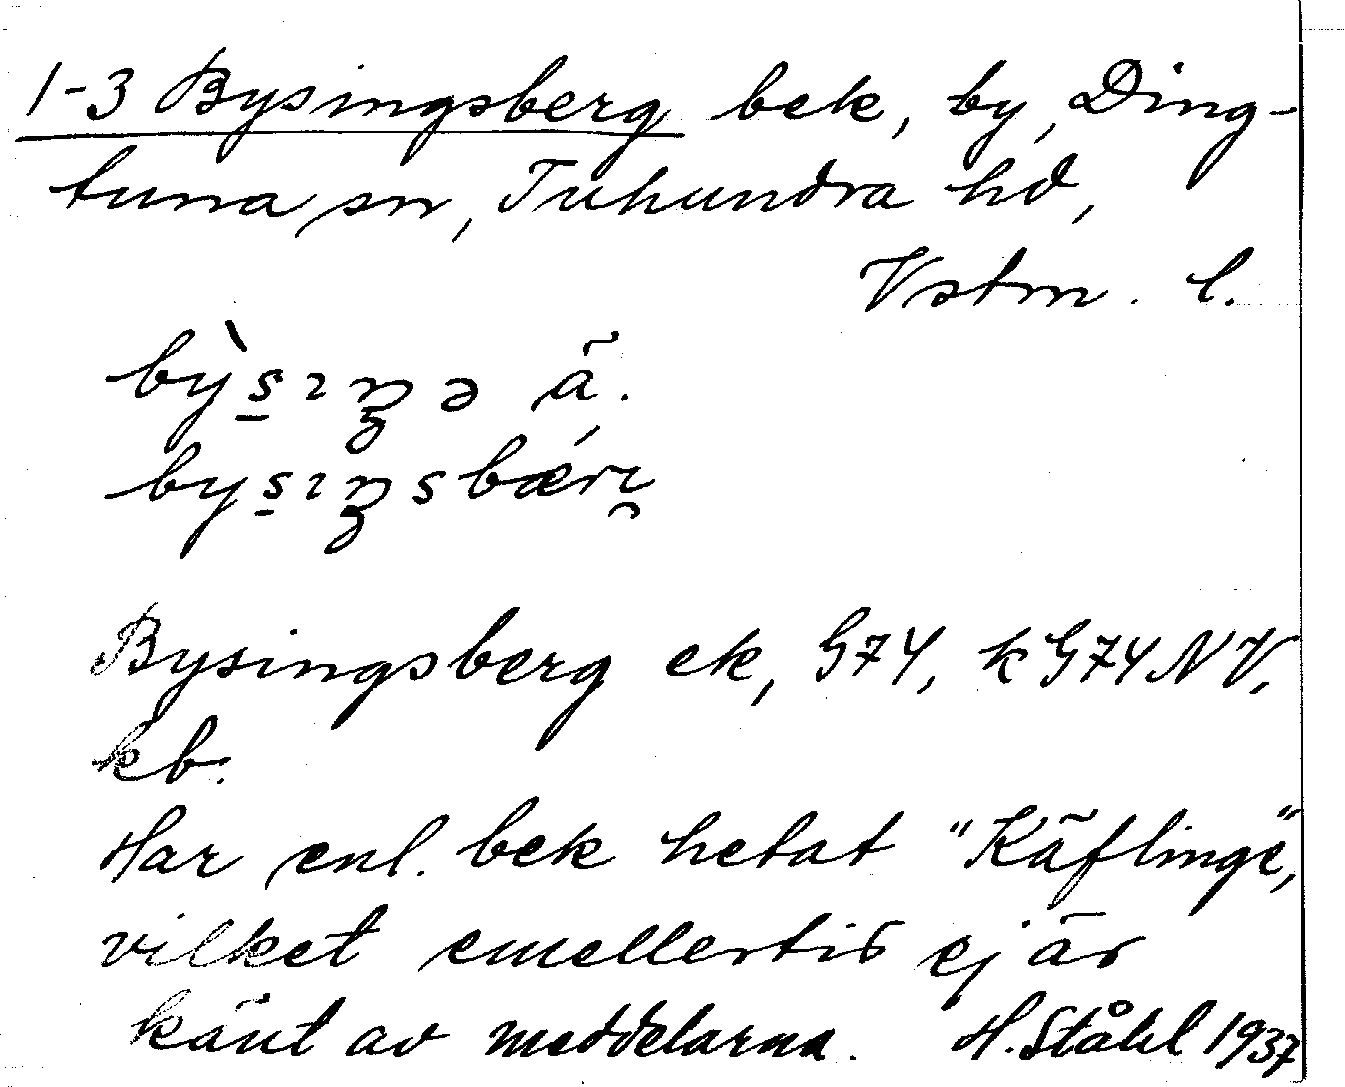 1-3 Bysingsberg bek, by, Ding-
tuna sn, Tuhundra hd,
Vstm. l.
bỳs̱ıŋə ä.
bys̱ıŋsbǽrı̯
Bysingsberg ek, G74, kG74NV,
kb.
Har enl. bek hetat "Käflinge",
vilket emellertid ej är
känt av meddelarna. H. Ståhl 1937